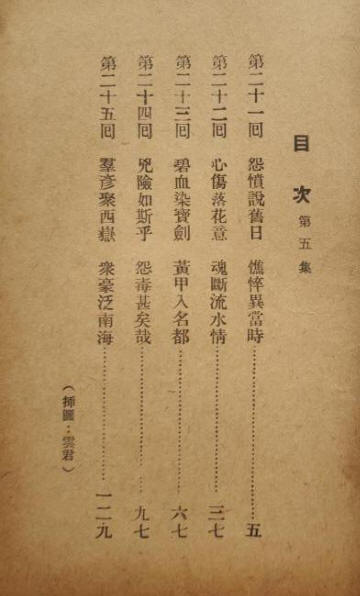 目次 第五集
第二十一回 怨憤說舊日 憔悴異當時…………五
第二十二回 心傷落花意 魂斷流水情…………三七
第二十三回 碧血染寶劍 黃甲入名都…………六七
第二十四回 兇險如斯乎 怨毒甚矣哉…………九七
第二十五回 羣彥聚西嶽 衆豪泛南海…………一二九
（挿圖：雲君）